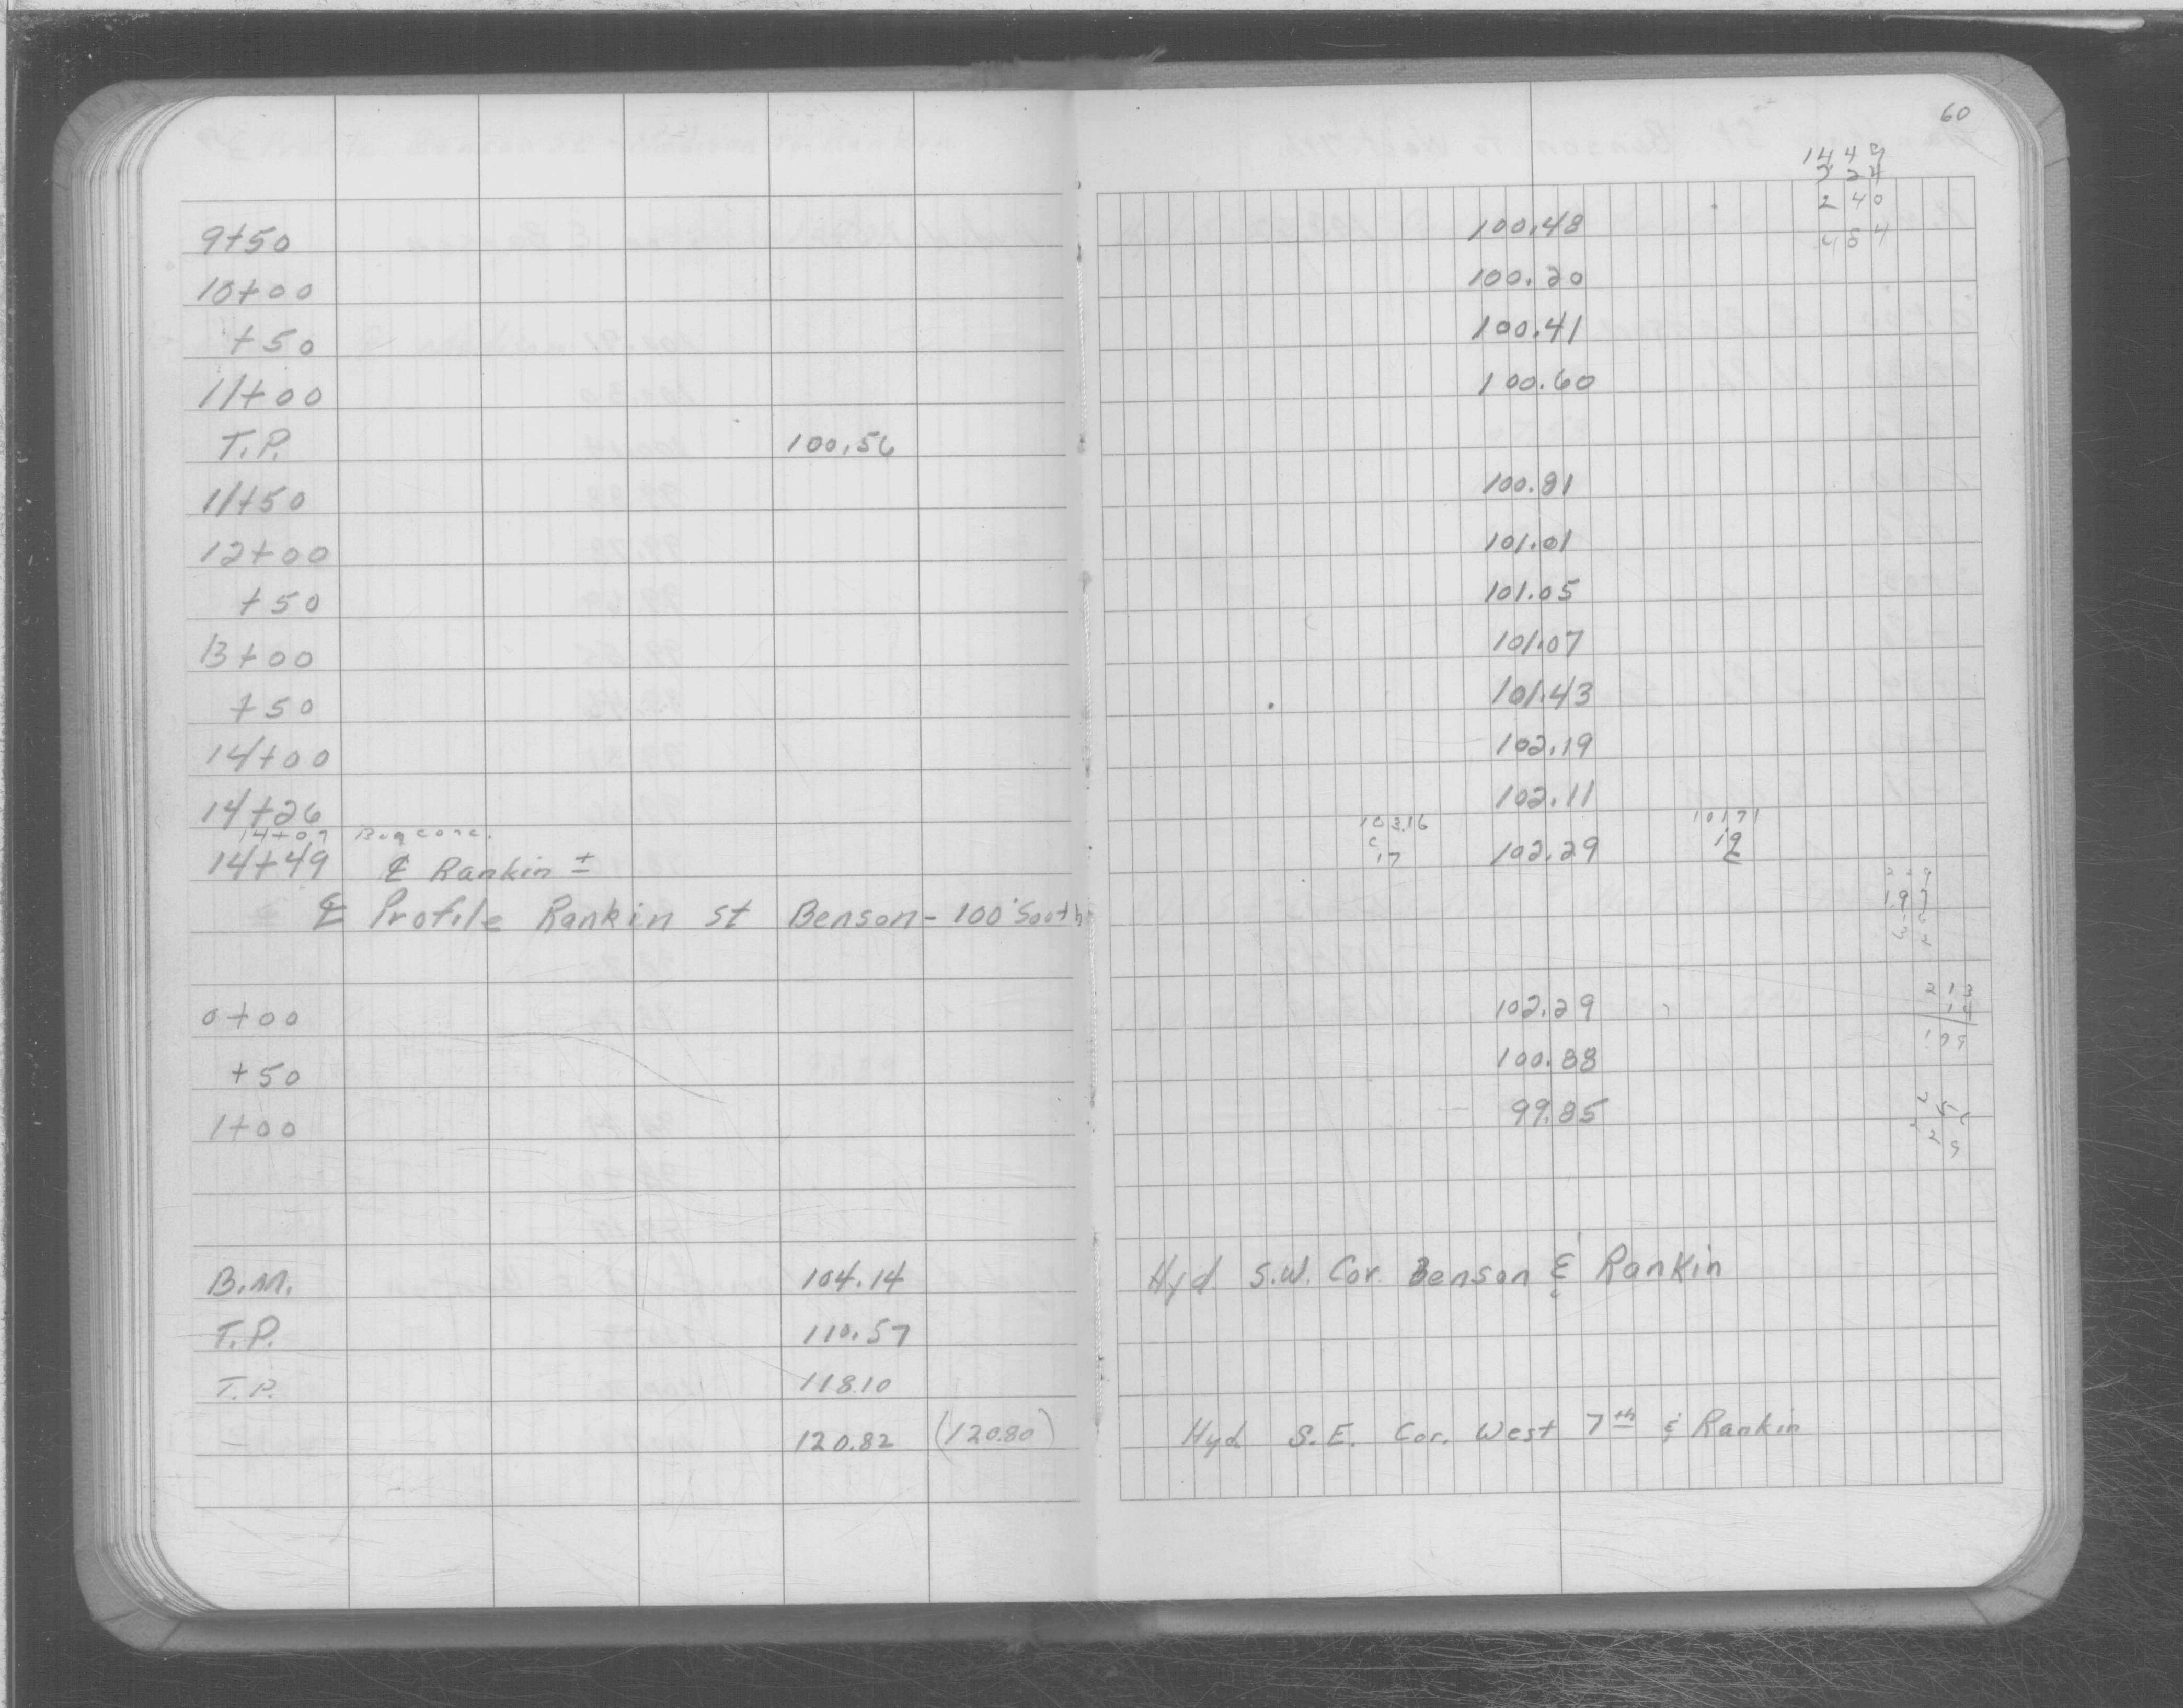 60
1449
224
240
484
9+50 100.48
10+00 100.20
+50 100.41
11+00 100.60
T.P. 100.56
11+50 100.81
12+00 101.01
+50 101.05
13+00 101.07
+50 101.43
14+00 102.19
14+26 102.11
14+07 Beg conc. 103.16 101.71
14+49 ℄ Rankin ± c 17 102.29 19 c
229
℄ Profile Rankin St Benson - 100' South 1.97
213
0+00 102.29 14
199
+50 100.88
1+00 99.85
229
B.M. 104.14 Hyd. S.W. Cor. Benson & Rankin
T.P. 110.57
T.P. 118.10
120.82 (120.80) Hyd. S.E. Cor. West 7th & Rankin